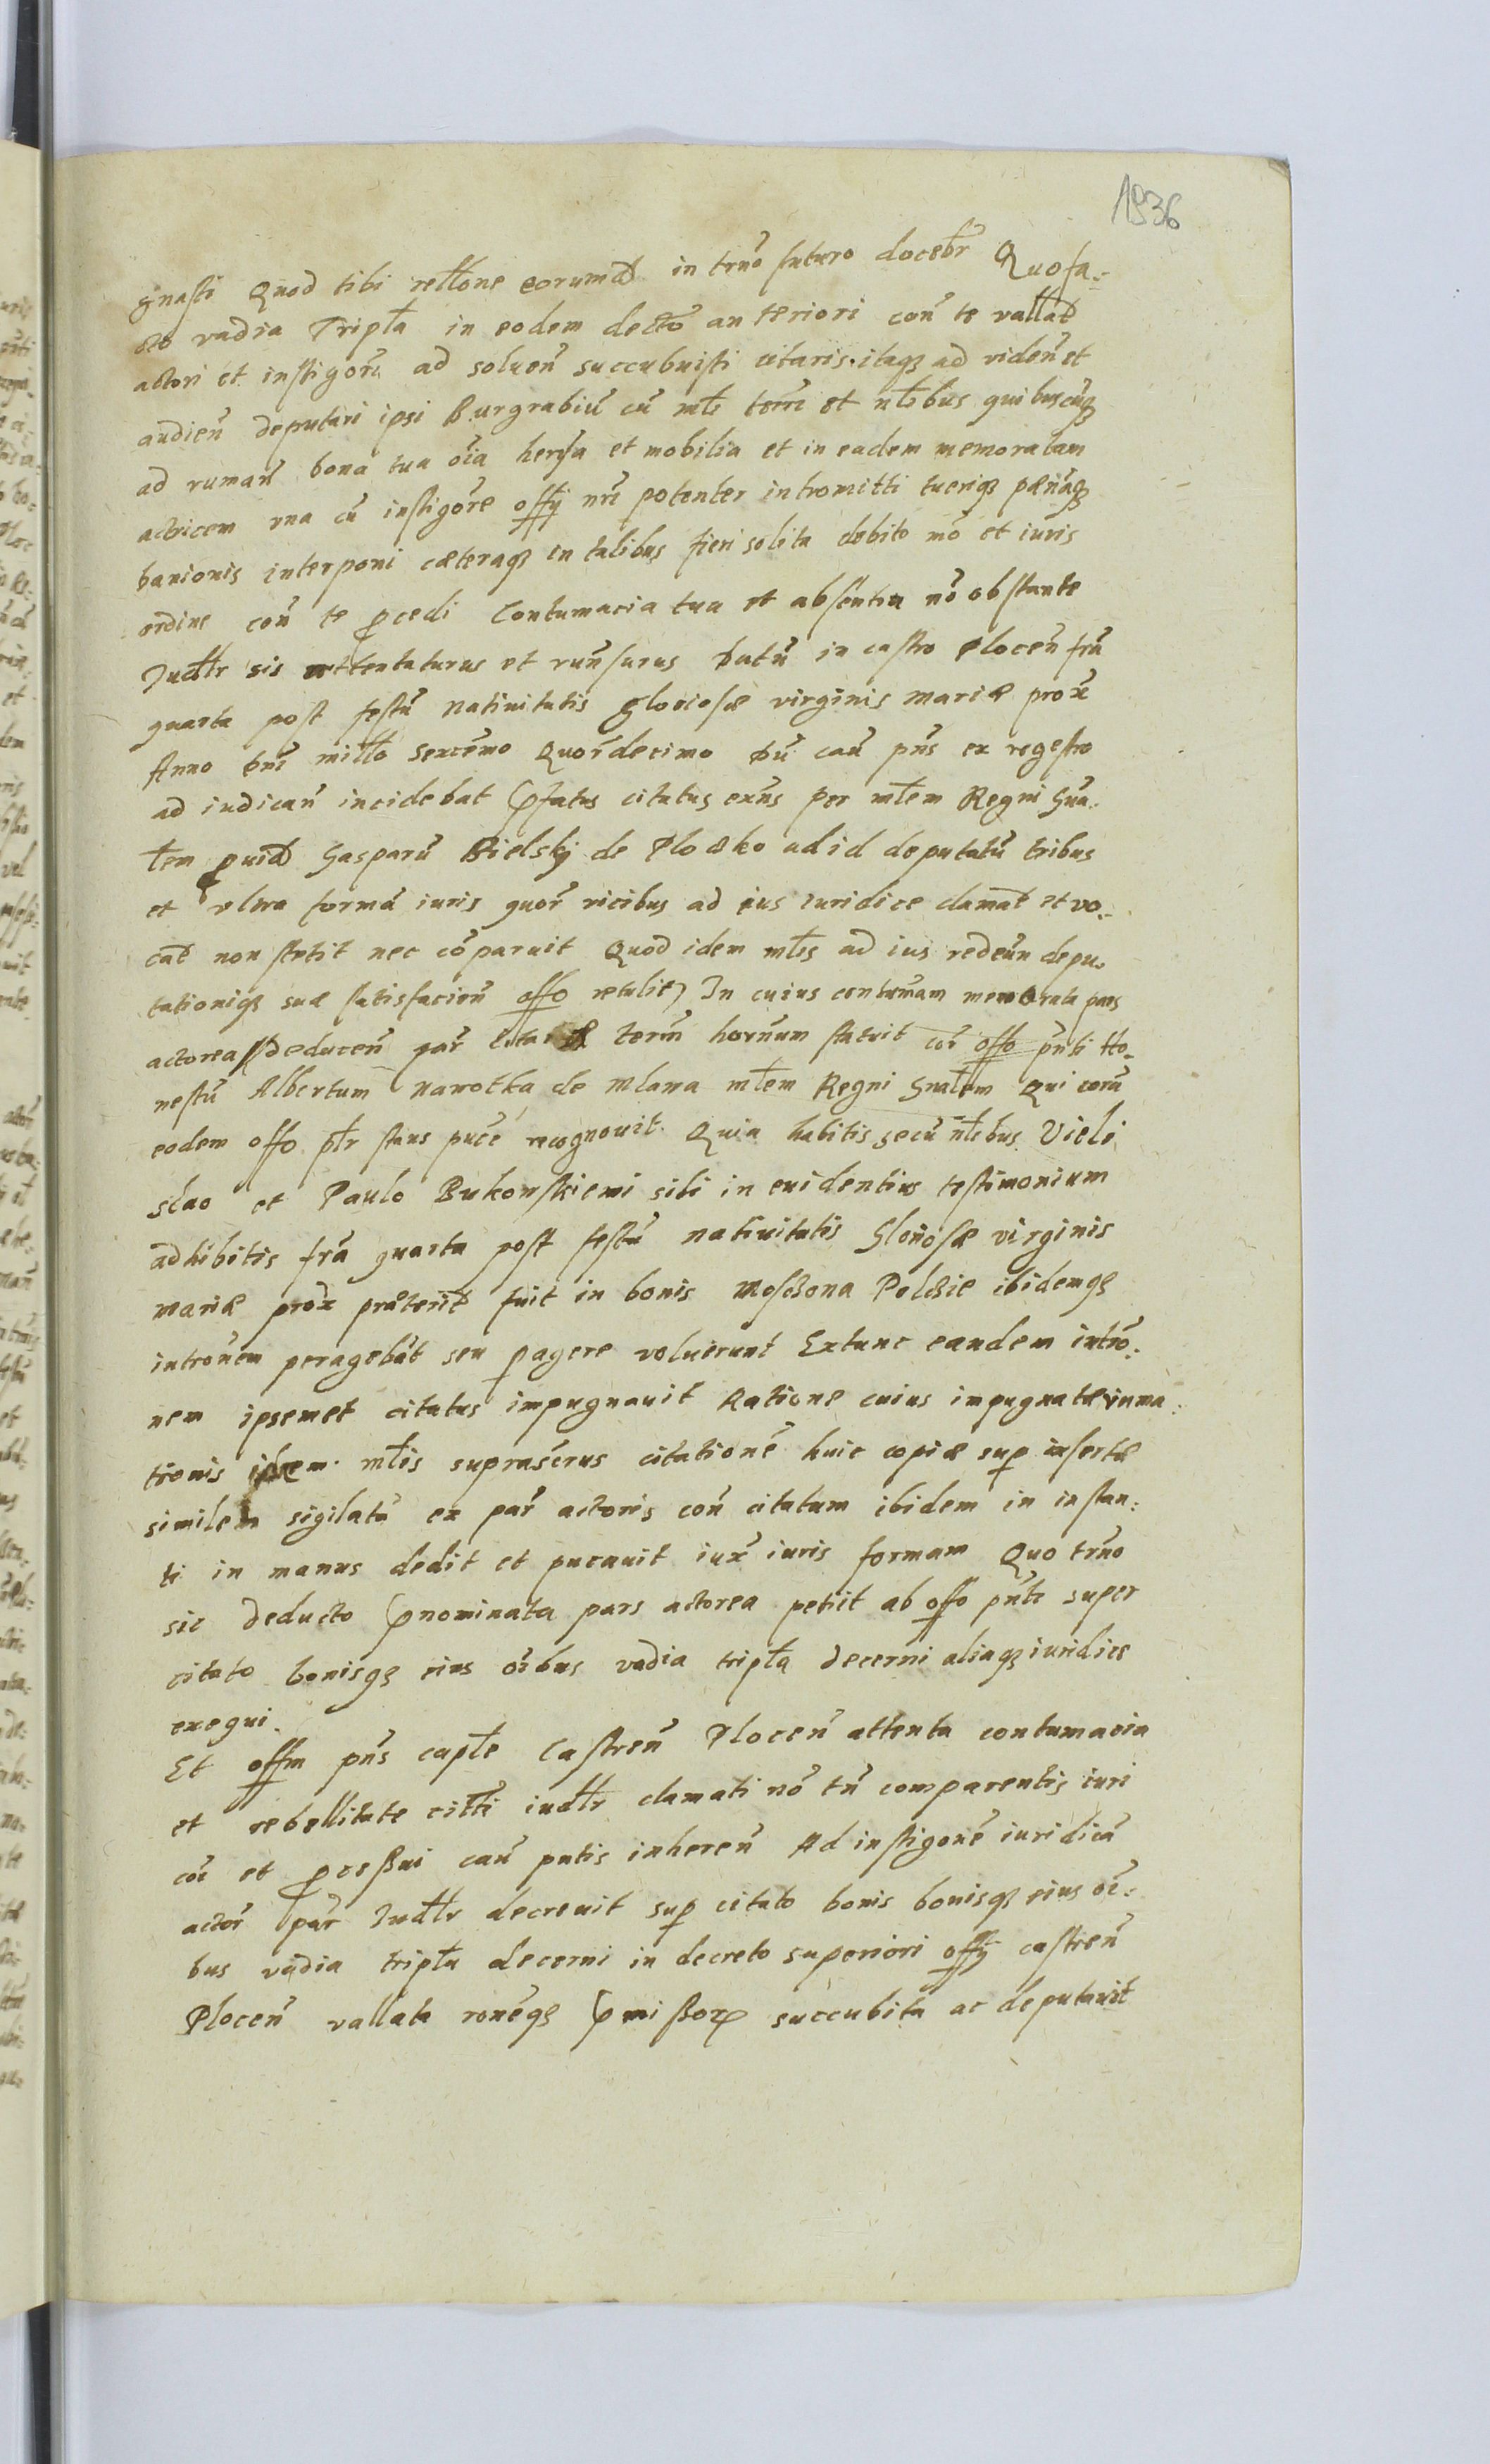 1936
gnasti Quod tibi rellone eorumd in trno futuro docebr Quofa-
cto vadia Tripla in eodem decto anteriori con te vallad
actori et instigori ad soluen succubuisti citaris itaq ad viden et
audien deputari ipsi Burgrabiu cu mle terri et nlebus quibuscuq
ad ruman bona tua oia herdia et mobilia et in eadem memoratam
actricem vna cu instigore offy nri potenter intromitti tueriq pœnaq
banionis interponi cæteraq in talibus fieri solita debito mo et iuris
ordine con te pcedi Contumacia tua et absentia no obstante
Judlr sis attentaturus et runsurus datu in castro Plocen fria
quarta post festu Natiuitatis Gloriosæ virginis Mariæ prox
Anno dni millo Sexcemo Quordecimo du can pns ex regestro
ad iudican incidebat pfatus citatus exns per mlem Regni Gna-
lem puid Gasparu Bielskj de Plocko ad id deputatu tribus
et vltra forma iuris quor vicibus ad ius iuridice clamat et vo-
cat non stetit nec coparuit Quod idem mles ad ius redeun depu-
tationiq suæ satisfacien offo retulit) In cuius contumam memorata pars
actorea deducen par termi hornum statuit cor offo pnti Ho-
nestu Albertum Nawotka de Mlawa mlem Regni Gnalem Qui coru
eodem offo plr stans puce recognouit Quia habitis secu nlebus Vieli
slao et Paulo Bukowskiemi sibi in euidentius testimonium
adhibitis fria quarta post festu natiuitatis Gloriosæ virginis
Mariæ prox præterit fuit in bonis Mosczona Polczie ibidemq
intronem peragebat seu pagere voluerunt Extunc eandem intro-
nem ipsemet citatus impugnauit Ratione cuius impugnatæ inma-
tionis idem mles suprascrus citatione huic copiæ sup insertæ
similem sigilatu ex par actoris con citatum ibidem in instan-
ti in manus dedit et pucauit iux iuris formam Quo trno
sic deducto pnominata pars actorea petiit ab offo pnti super
citato bonisq eius oibus vadia tripla decerni aliaq iuridice
exequi.
Et offm pns caple Castren Plocen attenta contumacia
et rebellitate citti iudlr clamati no tn comparentis iuri
coi et pceßui can pntis inheren Ad instigone iuridica
actor par Judlr decreuit sup citato bonis bonisq eius oi-
bus vadia tripla decerni in decreto superiori offy castren
Plocen vallata roneq pmißorx succubita ac deputauit